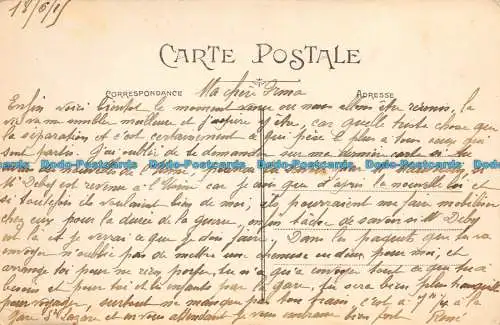 18/6/15
CARTE POSTALE
CORRESPONDANCE Ma chère Irma ADRESSE
Enfin voici bientôt le moment venu où nous allons être réunis, la
vie va me sembler meilleure et j'aspire y être, car quelle triste chose que
la séparation et c'est certainement ce qui pèse le plus à tous ceux qui
sont partis. J'ai oublié de te demander sur ma dernière carte si tu
Mr Deboy est revenu à l'Usine car je que d'après la nouvelle loi et
si toutefois ils voulaient bien de moi, ils pourraient me faire mobiliser
chez eux pour la durée de la guerre, enfin tâche de savoir si Mr Deboy
est là et je verrai ce que je dois faire. Dans les paquets que tu vas
envoyer n'oublie pas de mettre une chemise ou deux pour moi, et
arrange toi pour ne rien porter, tu n'as qu'à envoyer tout ce que tu as
besoin et pour toi et les enfants par la gare, tu seras bien plus tranquille
pour voyager, surtout ne manque pas ton train, c'est à
gare St Lazare et en vous attendant je vous embrasse bien fort René
Bodo-Postcards Bodo-Postcards Bodo-Postcards Bodo-Postcards